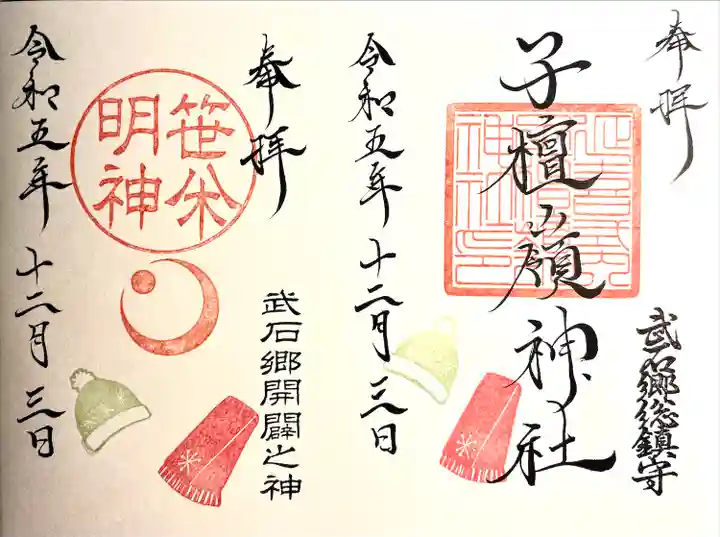 奉拝
武石郷総鎮守
子檀嶺神社
令和五年十二月三日
奉拝
武石郷開闢之神
笹焼
明神
令和五年十二月三日